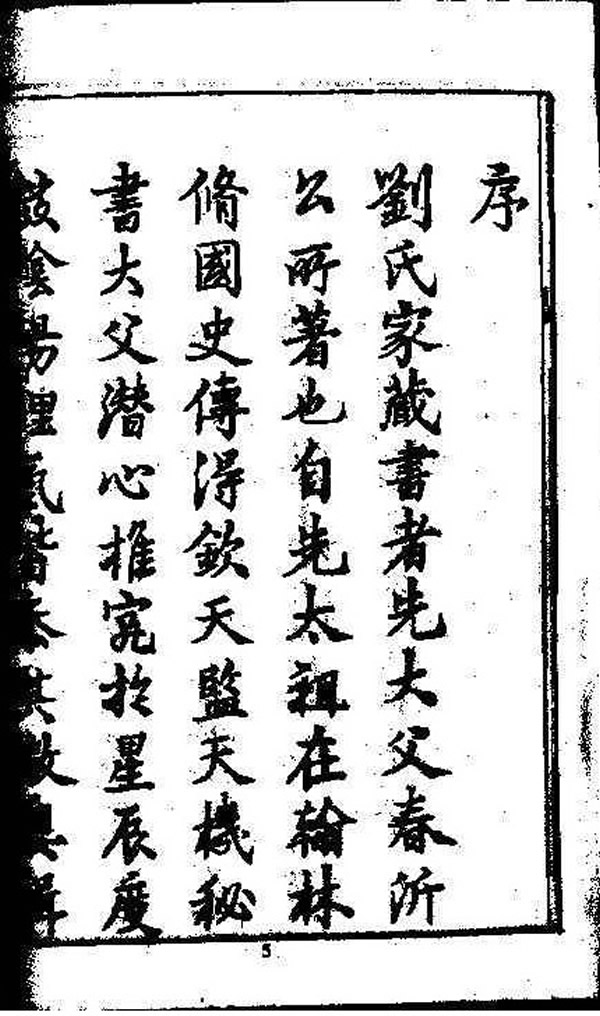 序
劉氏家藏書者先大父春沂
公所著也自先太祖在翰林
脩國史傳得欽天監天機秘
書大父潛心推究於星辰度
陰陽理氣皆其數
5